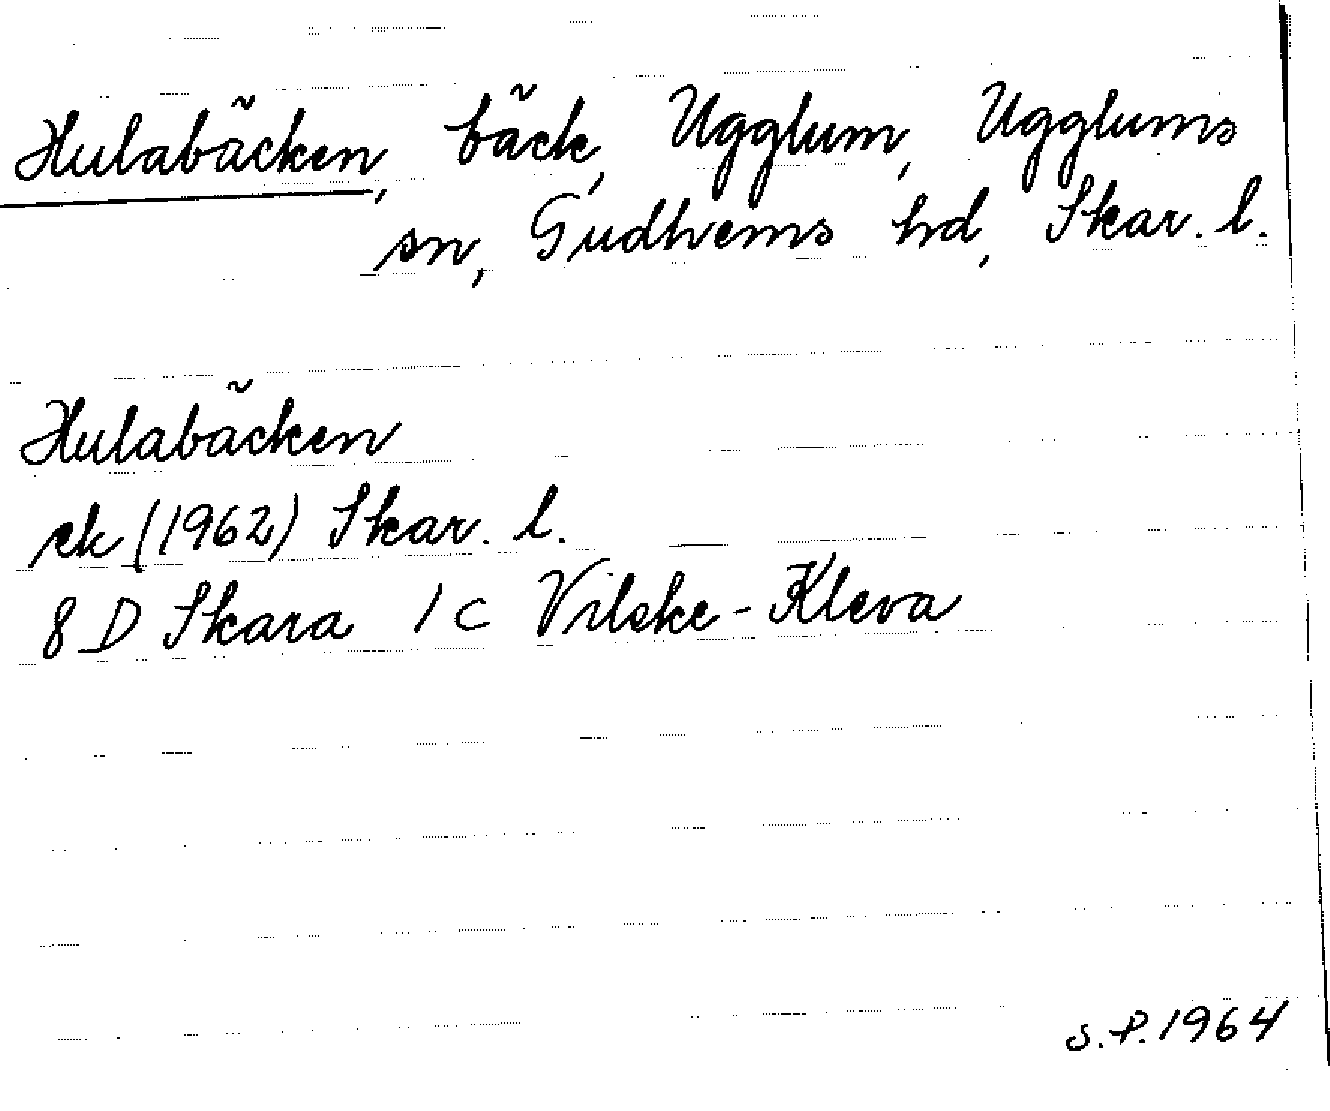 Hulabäcken, bäck, Ugglum, Ugglums
sn, Gudhems hd, Skar. l.
Hulabäcken
ek (1962) Skar. l.
8 D Skara 1 C Vilske-Kleva
S.P. 1964